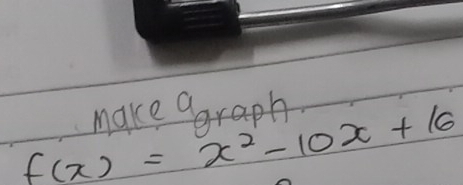 make a graph
f(x) = x² - 10x + 16